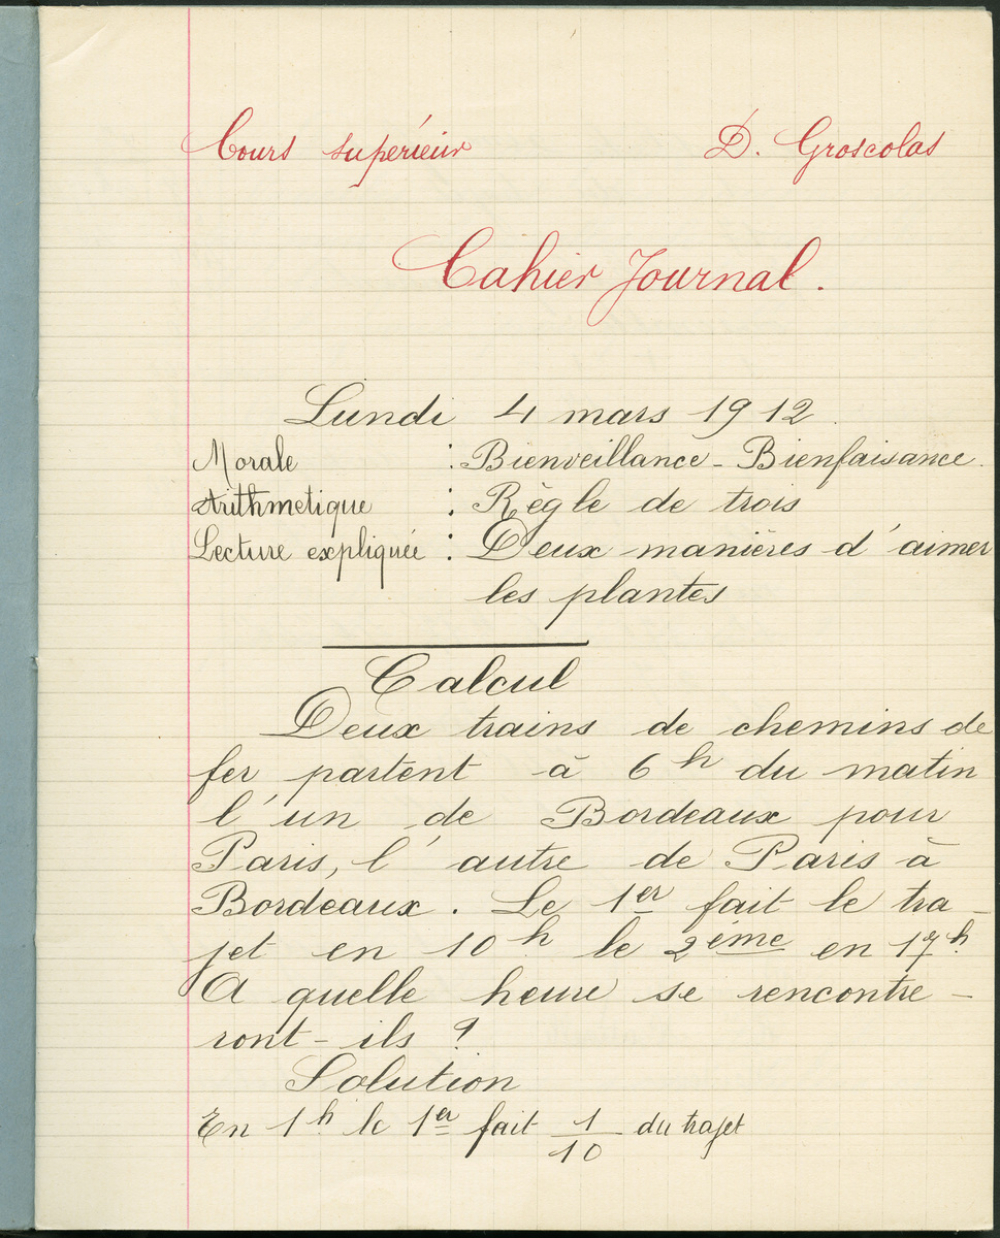 Cours supérieur D. Groscolas
Cahier Journal.
Lundi 4 mars 1912.
Morale : Bienveillance - Bienfaisance.
Arithmetique : Règle de trois
Lecture expliquée : Deux manières d'aimer
les plantes
Calcul
Deux trains de chemins de
fer partent à 6 h du matin
l'un de Bordeaux pour
Paris, l'autre de Paris à
Bordeaux. Le 1er fait le tra-
jet en 10 h le 2ème en 17 h.
A quelle heure se rencontre-
ront-ils ?
Solution
En 1 h le 1er fait 1/10 du trajet